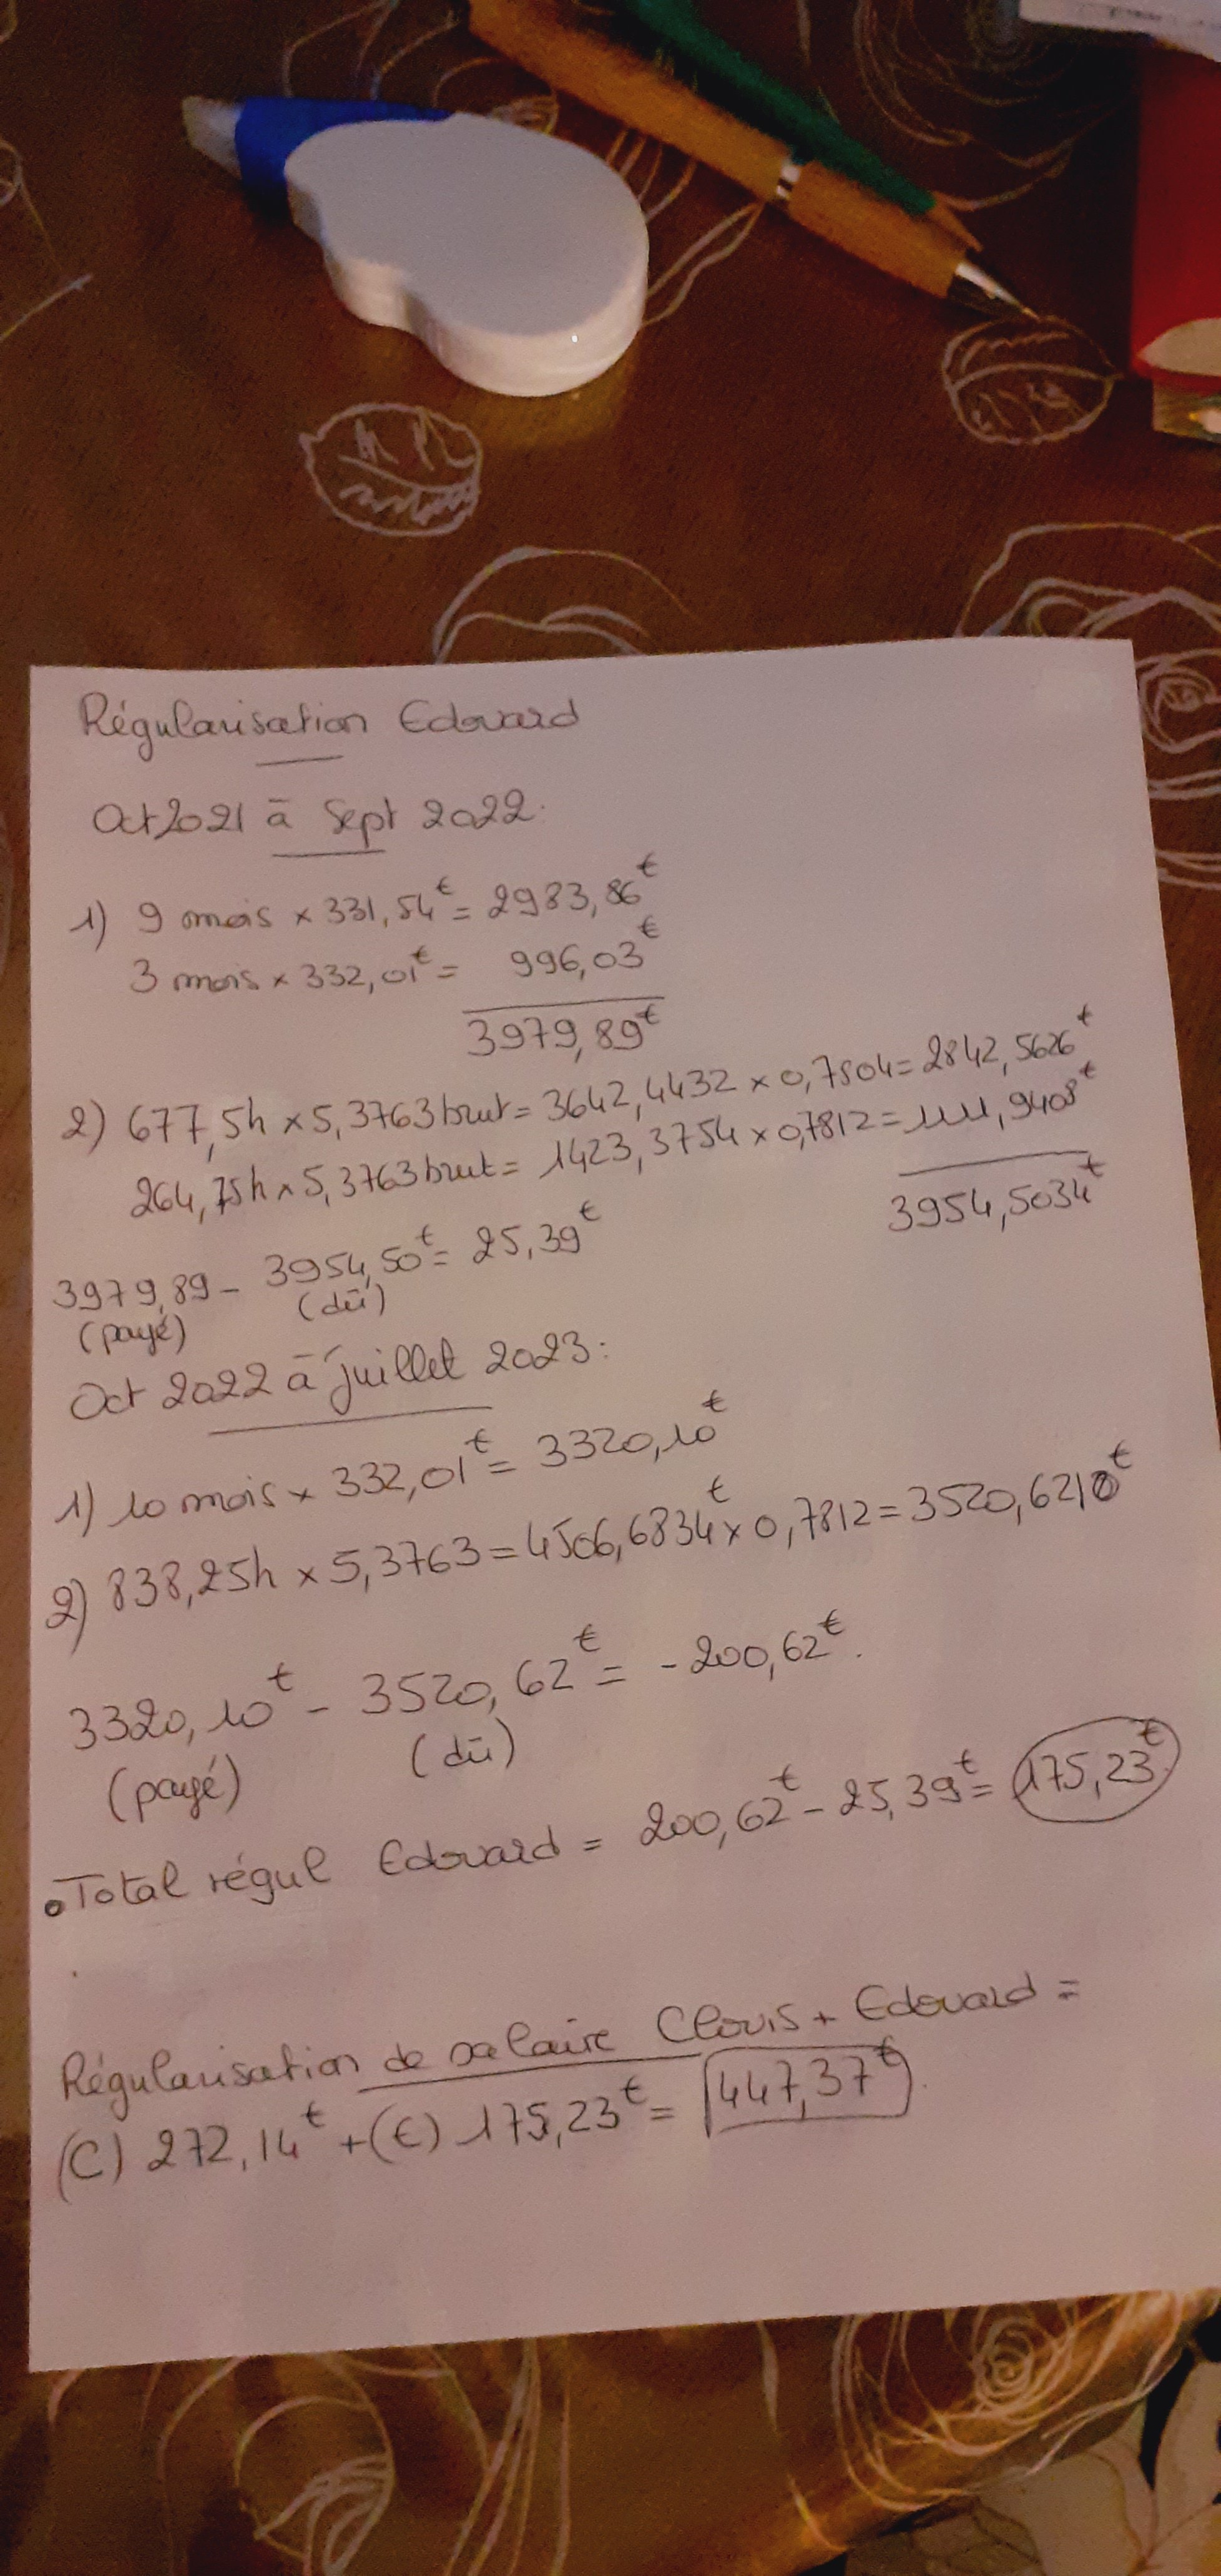 Régularisation Edouard
Oct 2021 à Sept 2022:
1) 9 mois x 331,54€ = 2983,86€
3 mois x 332,01€ = 996,03€
3979,89€
2) 677,5h x 5,3763 brut = 3642,4432 x 0,7804 = 2842,5626€
264,75h x 5,3763 brut = 1423,3754 x 0,7812 = 1111,9408€
3954,5034€
3979,89 - 3954,50€ = 25,39€
(payé) (dû)
Oct 2022 à juillet 2023:
1) 10 mois x 332,01€ = 3320,10€
2) 838,25h x 5,3763 = 4506,6834€ x 0,7812 = 3520,6210€
3320,10€ - 3520,62€ = -200,62€.
(payé) (dû)
• Total régul Edouard = 200,62€ - 25,39€ = 175,23€
Régularisation de salaire Clovis + Edouard =
(C) 272,14€ + (E) 175,23€ = 447,37€.